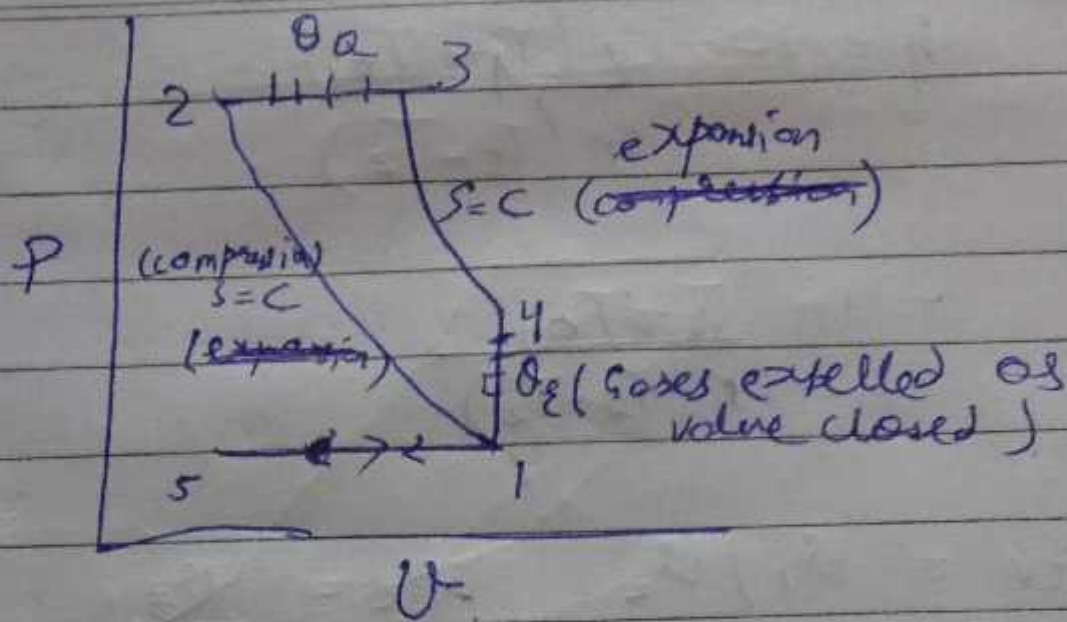 θa
2
3
expansion
S=C (compression)
P
(compression)
S=C
(expansion)
4
θε (Gases expelled as
valve closed)
5
1
V